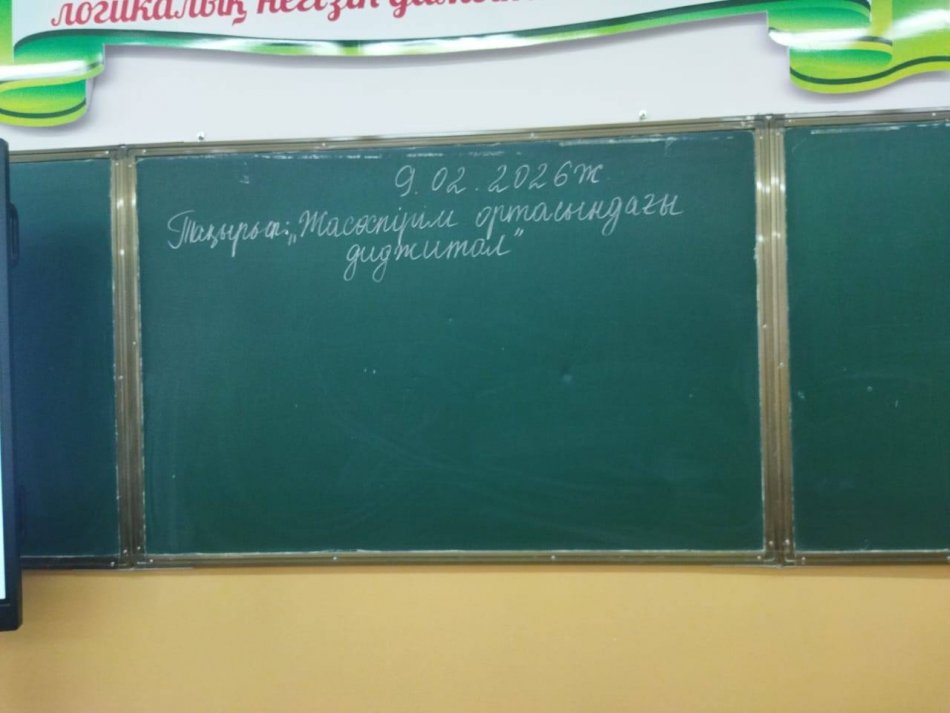 логикалық негізін
9.02.2026ж
Тақырып: „Жасөспірім ортасындағы
диджитал"